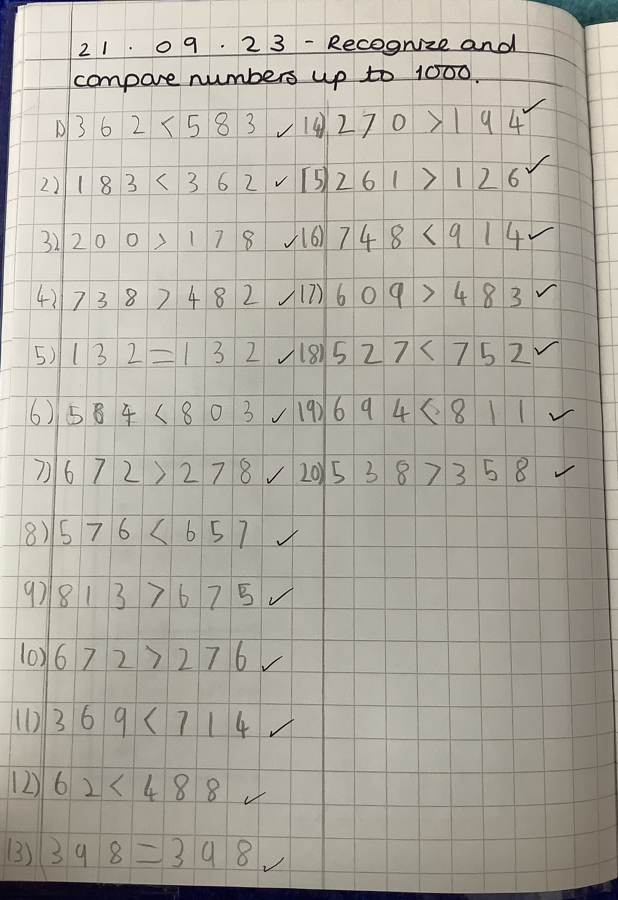 21.09.23 - Recognize and
compare numbers up to 1000.
1) 362 < 583 ✓
2) 183 < 362 ✓
3) 200 > 178 ✓
4) 738 > 482 ✓
5) 132 = 132 ✓
6) 564 < 803 ✓
7) 672 > 278 ✓
8) 576 < 657 ✓
9) 813 > 675 ✓
10) 672 > 276 ✓
11) 369 < 714 ✓
12) 62 < 488 ✓
13) 398 = 398 ✓
14) 270 > 194 ✓
15) 261 > 126 ✓
16) 748 < 914 ✓
17) 609 > 483 ✓
18) 527 < 752 ✓
19) 694 < 811 ✓
20) 538 > 358 ✓